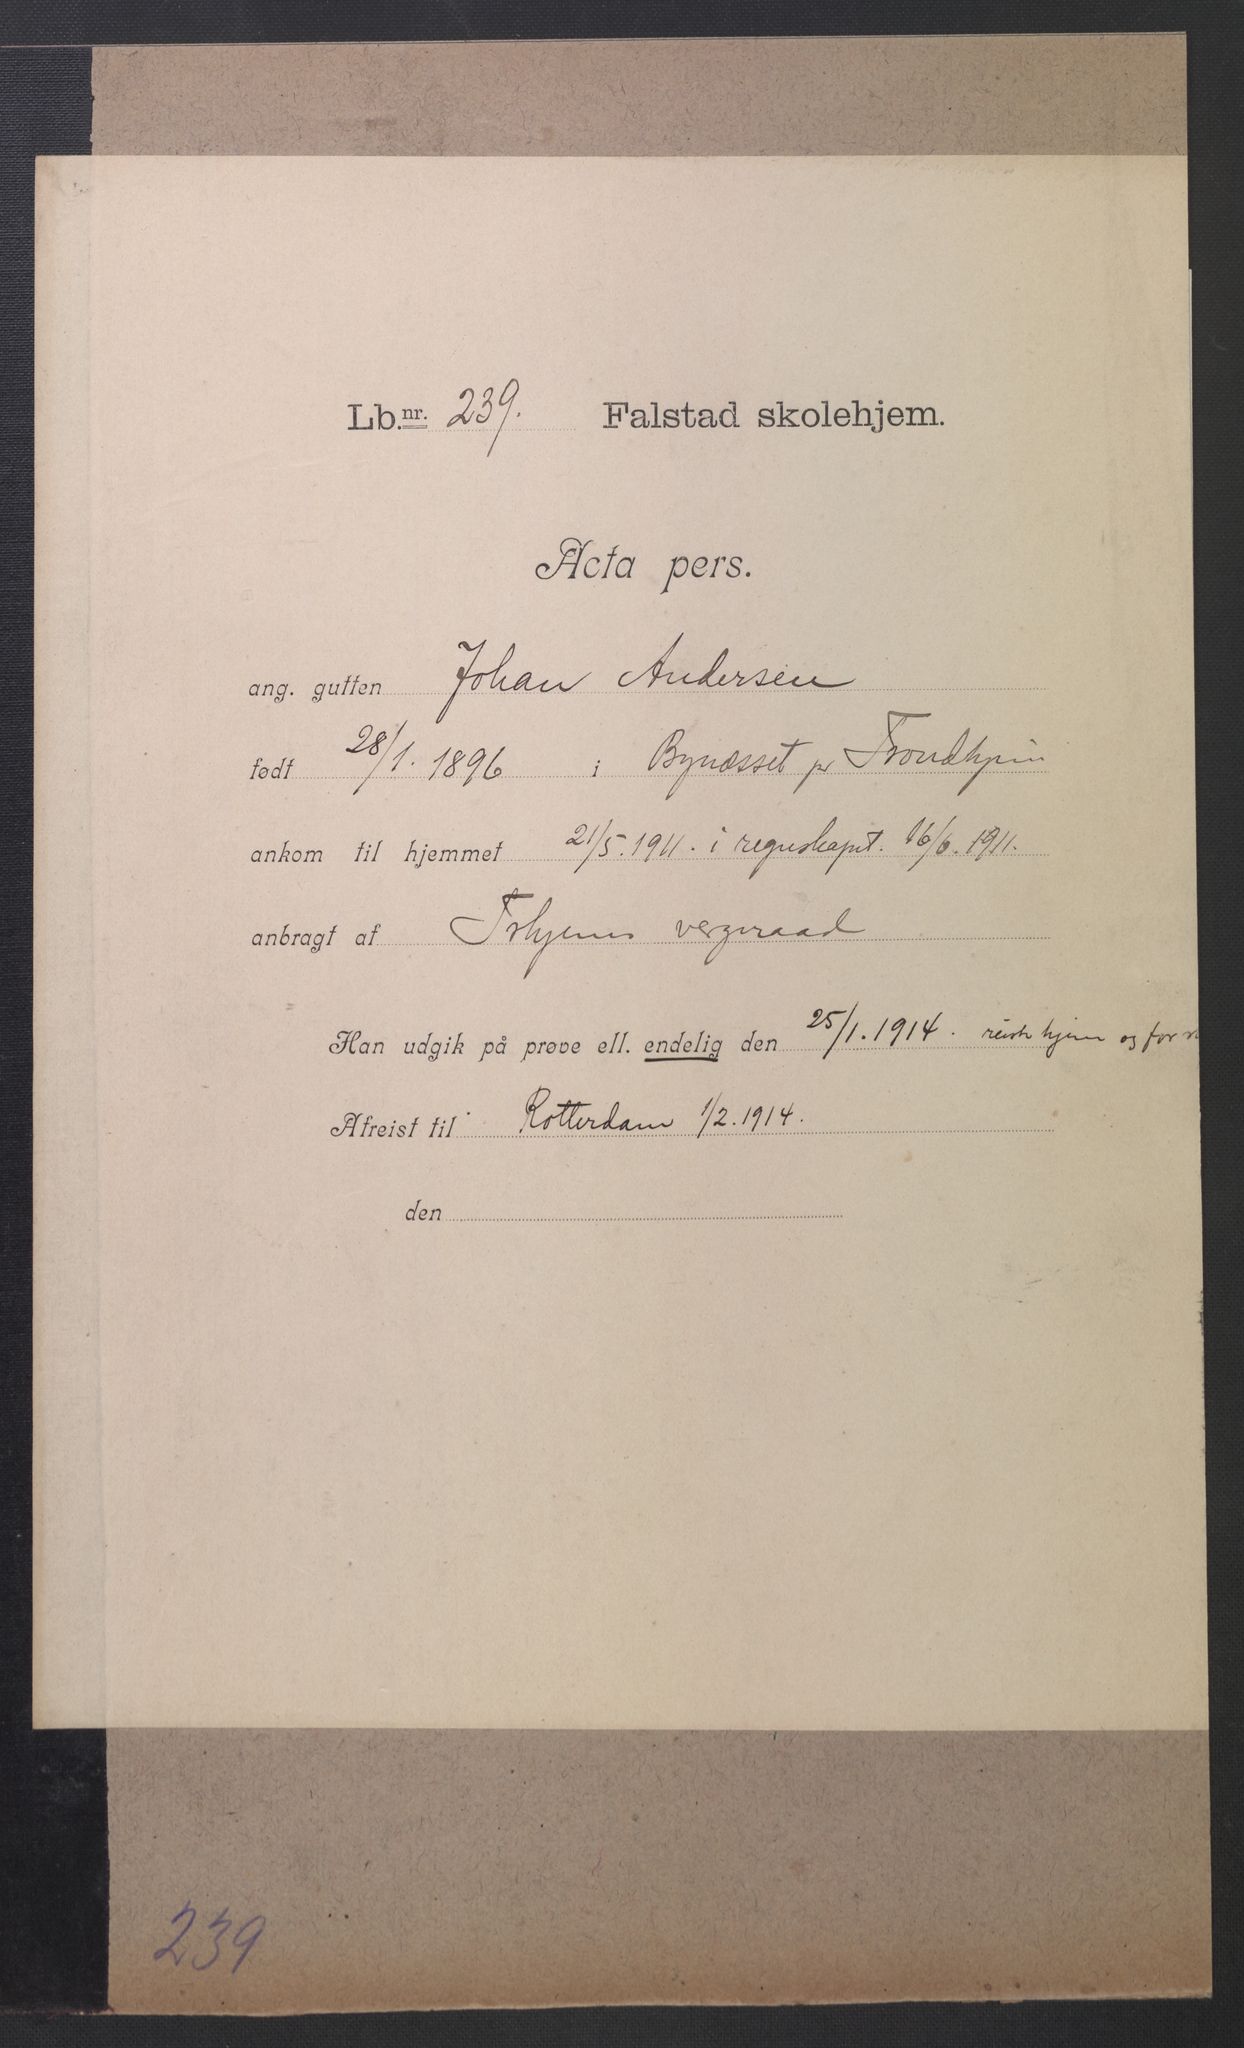 Lb.nr. 239. Falstad skolehjem.
Acta pers.
ang. gutten Johan Andersen
født 28/1. 1896 i Bynæsset pr Trondhjem
ankom til hjemmet 21/5. 1911. i regnskapet. 16/6. 1911.
anbragt af Trhjems vergeraad
Han udgik på prøve ell. endelig den 25/1. 1914. reiste hjem og for
Afreist til Rotterdam 1/2. 1914.
den
239